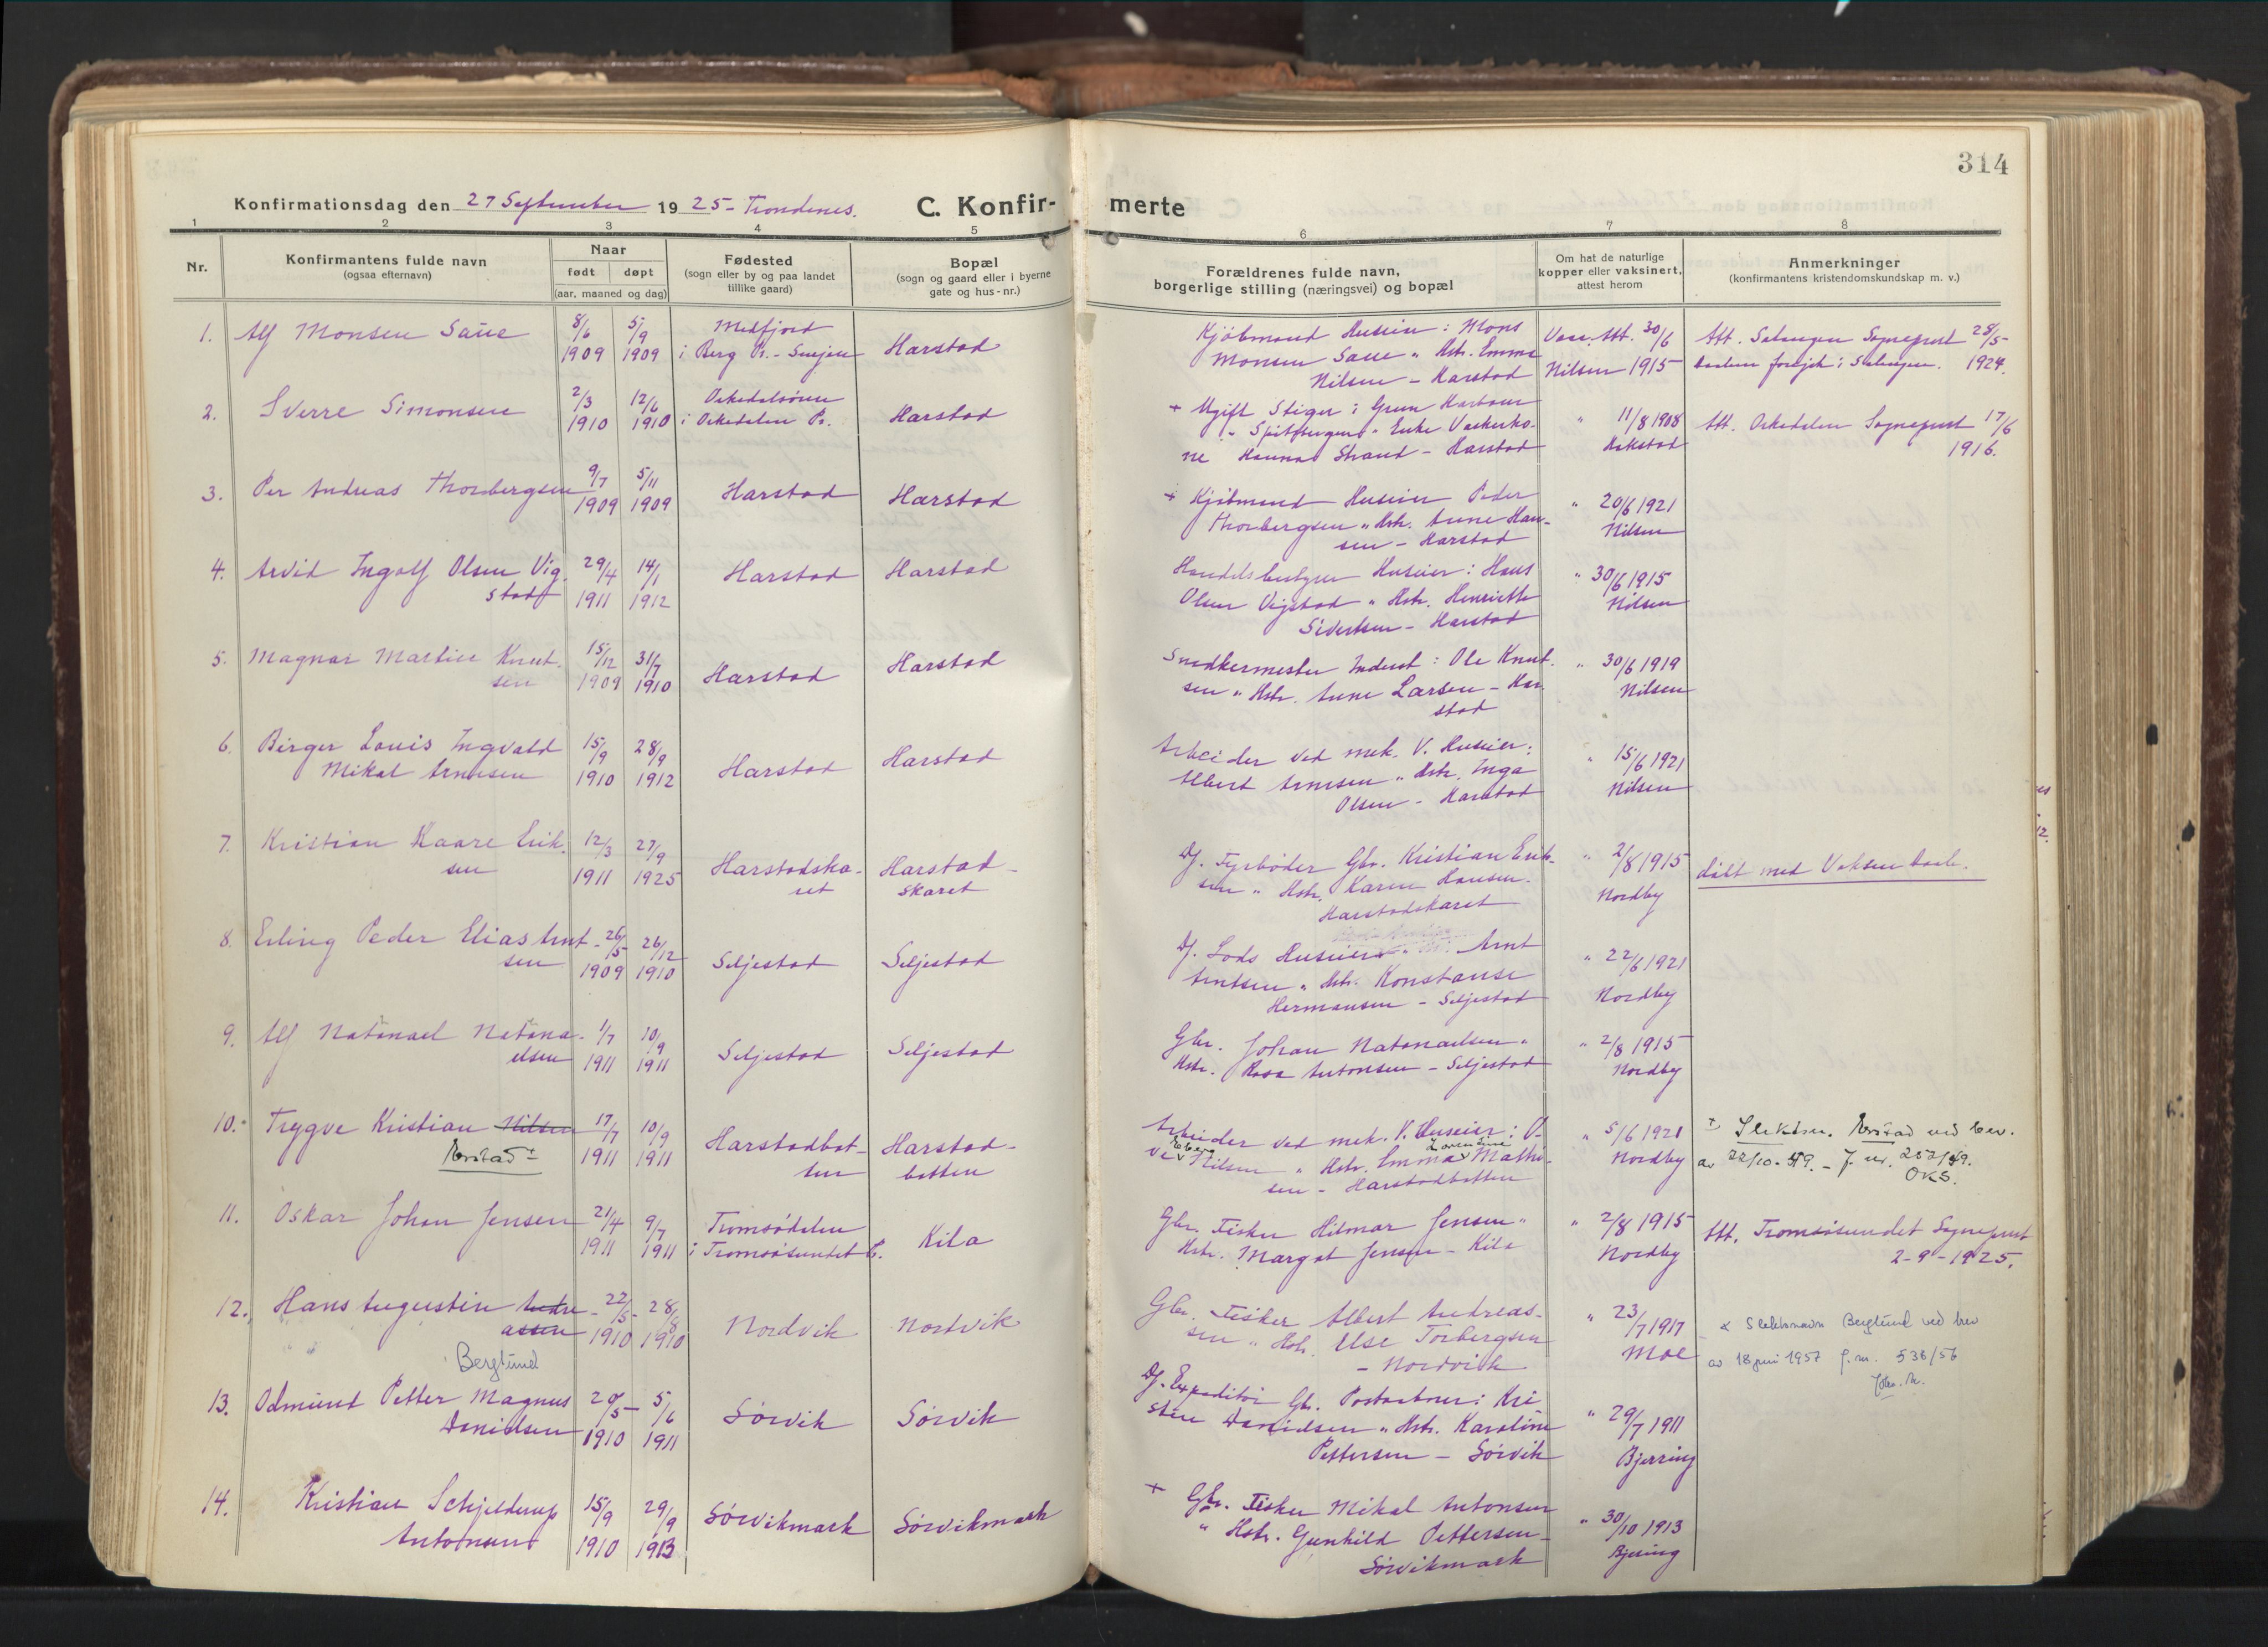 314
Konfirmationsdag den 27 September 1925 - Trondenes.
C. Konfir-
merte
1 2 3 4 5 6 7 8
Nr.
Konfirmantens fulde navn
(ogsaa efternavn)
Naar
født døpt
(aar, maaned og dag)
Fødested
(sogn eller by og paa landet
tillike gaard)
Bopæl
(sogn og gaard eller i byerne
gate og hus-nr.)
Forældrenes fulde navn,
borgerlige stilling (næringsvei) og bopæl
Om hat de naturlige
kopper eller vaksinert,
attest herom
Anmerkninger
(konfirmantens kristendomskundskap m. v.)
1. Alf Monsen Saue 8/6 5/9 Medfjord
1909 1909 i Berg Pr. - Senjen Harstad
Kjøbmand Huseier: Mons
Monsen Saue " Hstr. Emma
Nilsen - Harstad
Vacc. Att. 30/6
Nilsen 1915
Att. Salangen Sogneprest 28/5
Daaben foregik i Salangen. 1924.
2. Sverre Simonsen 2/3 12/6 Orkedalsøren
1910 1910 i Orkedalen Pr. Harstad
+ Ugift Stiger i Green Harbour
- Spitsbergen " Enke Vaskeko-
ne Hanna Strand - Harstad
" 11/8 1908
Rakstad
Att. Orkedalen Sogneprest 17/6
1916.
3. Per Andreas Thorbergsen 9/7 5/11 Harstad Harstad
1909 1909
+ Kjøbmand Huseier Peder
Thorbergsen " Hstr. Anne Han-
sen - Harstad
" 20/6 1921
Nilsen
4. Arvid Ingolf Olsen Vig- 29/4 14/1 Harstad Harstad
stad 1911 1912
Handelsbestyrer Huseier: Hans
Olsen Vigstad " Hstr. Henriette
Sivertsen - Harstad
" 30/6 1915
Nilsen
5. Magnar Martin Knut- 15/12 31/7 Harstad Harstad
sen 1909 1910
Snedkermester Inderst: Ole Knut-
sen " Hstr. Anne Larsen - Har-
stad
" 30/6 1919
Nilsen
6. Birger Louis Ingvald 15/9 28/9 Harstad Harstad
Mikal Arntsen 1910 1912
Arbeider ved mek. V. Huseier:
Albert Arntsen " Hstr. Inga
Olsen - Harstad
" 15/6 1921
Nilsen
7. Kristian Kaare Erik- 12/3 27/9 Harstadska- Harstad-
sen 1911 1925 ret skaret
Dj. Fyrbøder Gbr. Kristian Erik-
sen " Hstr. Karen Hansen.
Harstadskaret
" 2/8 1915
Nordby
døbt med Voksen Daab.
8. Erling Peder Elias Arnt- 26/5 26/12 Seljestad Seljestad
sen 1909 1910
Dj. Lods Huseier " Arnt
Arntsen " Hstr. Konstanse
Hermansen - Seljestad
" 22/6 1921
Nordby
9. Alf Natanael Natana- 1/7 10/9 Seljestad Seljestad
elsen 1911 1911
Gbr. Johan Natanaelsen "
Hstr. Rosa Antonsen - Seljestad
" 2/8 1915
Nordby
10. Trygve Kristian Nilsen 17/7 10/9 Harstadbot- Harstad-
1911 1911 ten botten
Arbeider ved mek. V. Huseier: O-
Nilsen " Hstr. Emma Mathi-
sen - Harstadbotten
" 5/6 1921
Nordby
ved bev.
av 22/10-59. - J. nr. 252/59.
OKS.
11. Oskar Johan Jensen 21/4 9/7 Tromsødalen
1911 1911 i Tromsøsundet P. Kila
Gbr. Fisker Hilmar Jensen "
Hstr. Margot Jensen - Kila
" 2/8 1915
Nordby
Att. Tromsøsundet Sogneprest
2-9-1925.
12. Hans Augustin Andre- 22/5 28/8 Nordvik Nordvik
assen 1910 1910
Berglund
Gbr. Fisker Albert Andreas-
sen " Hstr. Else Torbergsen
- Nordvik
" 23/7 1917
Moe
x Slektsnavn Berglund ved brev
av 18 juni 1957 J. nr. 538/56
13. Odmund Petter Magnus 20/5 5/6 Sørvik Sørvik
Danielsen 1910 1911
Dj. Expeditør Gbr. Postaabner: Kri-
sten Danielsen " Hstr. Karoline
Pettersen - Sørvik
" 29/7 1911
Bjerring
14. Kristian Schjelderup 15/9 29/9 Sørvikmark Sørvikmark
Antonsen 1910 1913
+ Gbr. Fisker Mikal Antonsen
" Hstr. Gunhild Pettersen -
Sørvikmark
" 30/10 1913
Bjerring